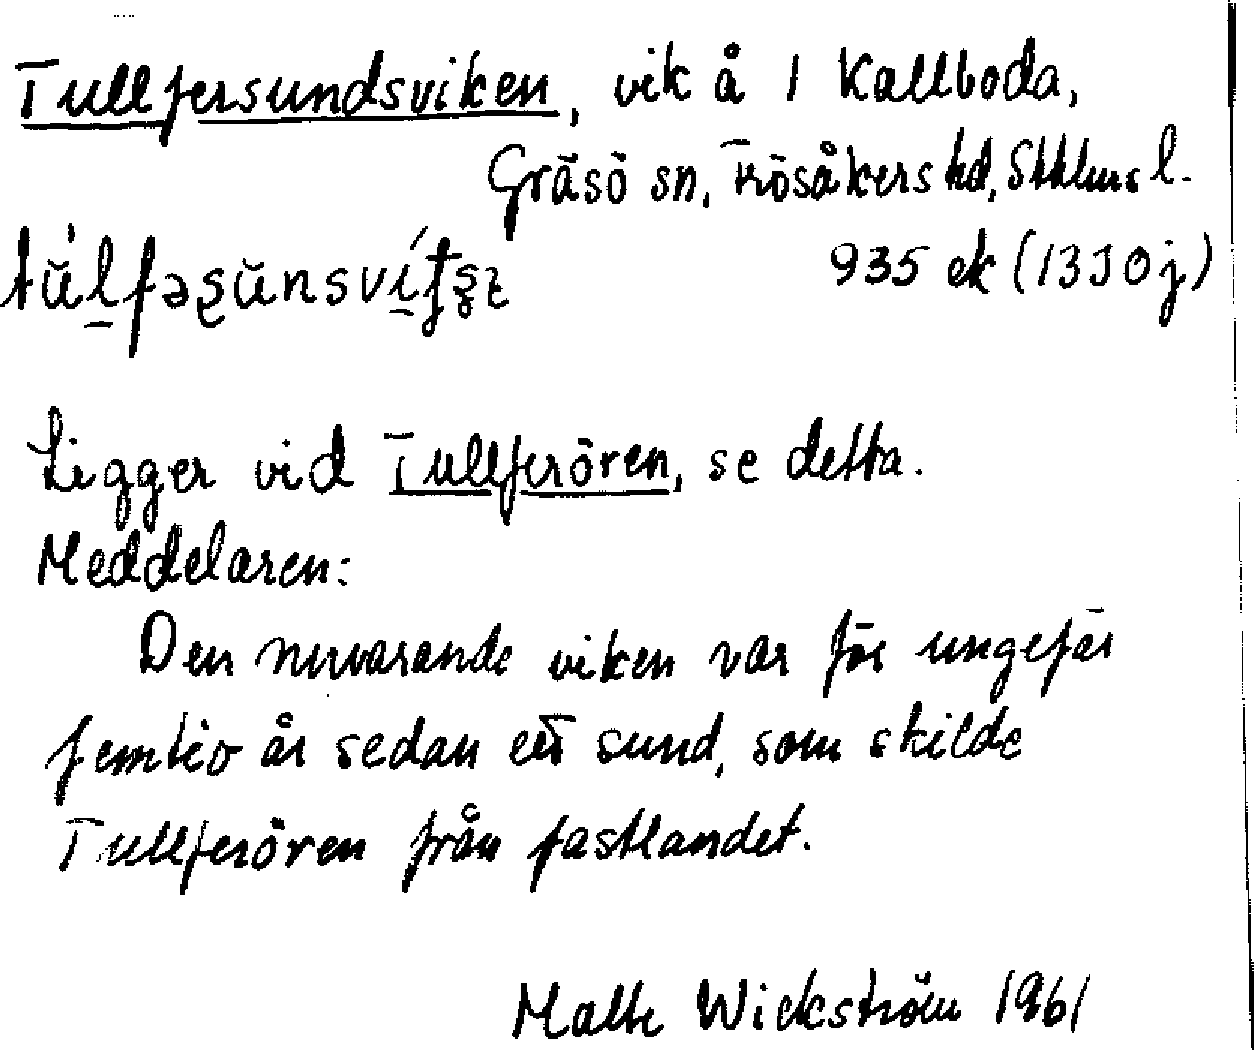 Tullfersundsviken, vik å 1 Kallboda,
Gräsö sn, Frösåkers hd, Sthlms l.
935 ek (13I0j)
Ligger vid Tullferören, se detta.
Meddelaren:
Den nuvarande viken var för ungefär
femtio år sedan ett sund, som skilde
Tullferören från fastlandet.
Malte Wickström 1961